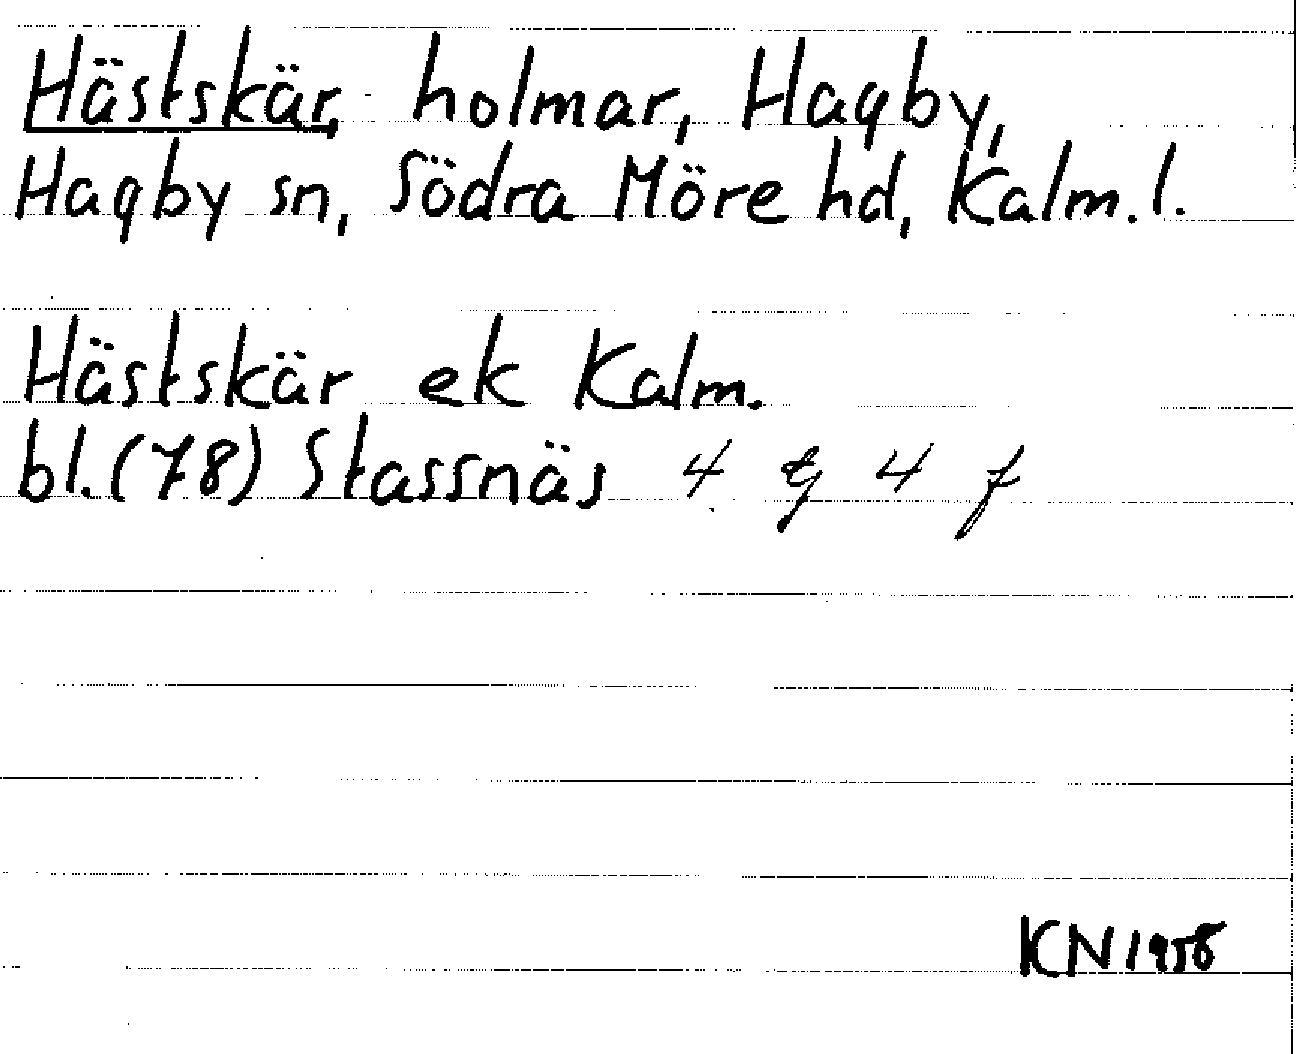 Hästskär, holmar, Hagby,
Hagby sn, Södra Möre hd, Kalm. l.
Hästskär ek Kalm.
bl. (78) Stassnäs 4 & 4 f
KN 1958